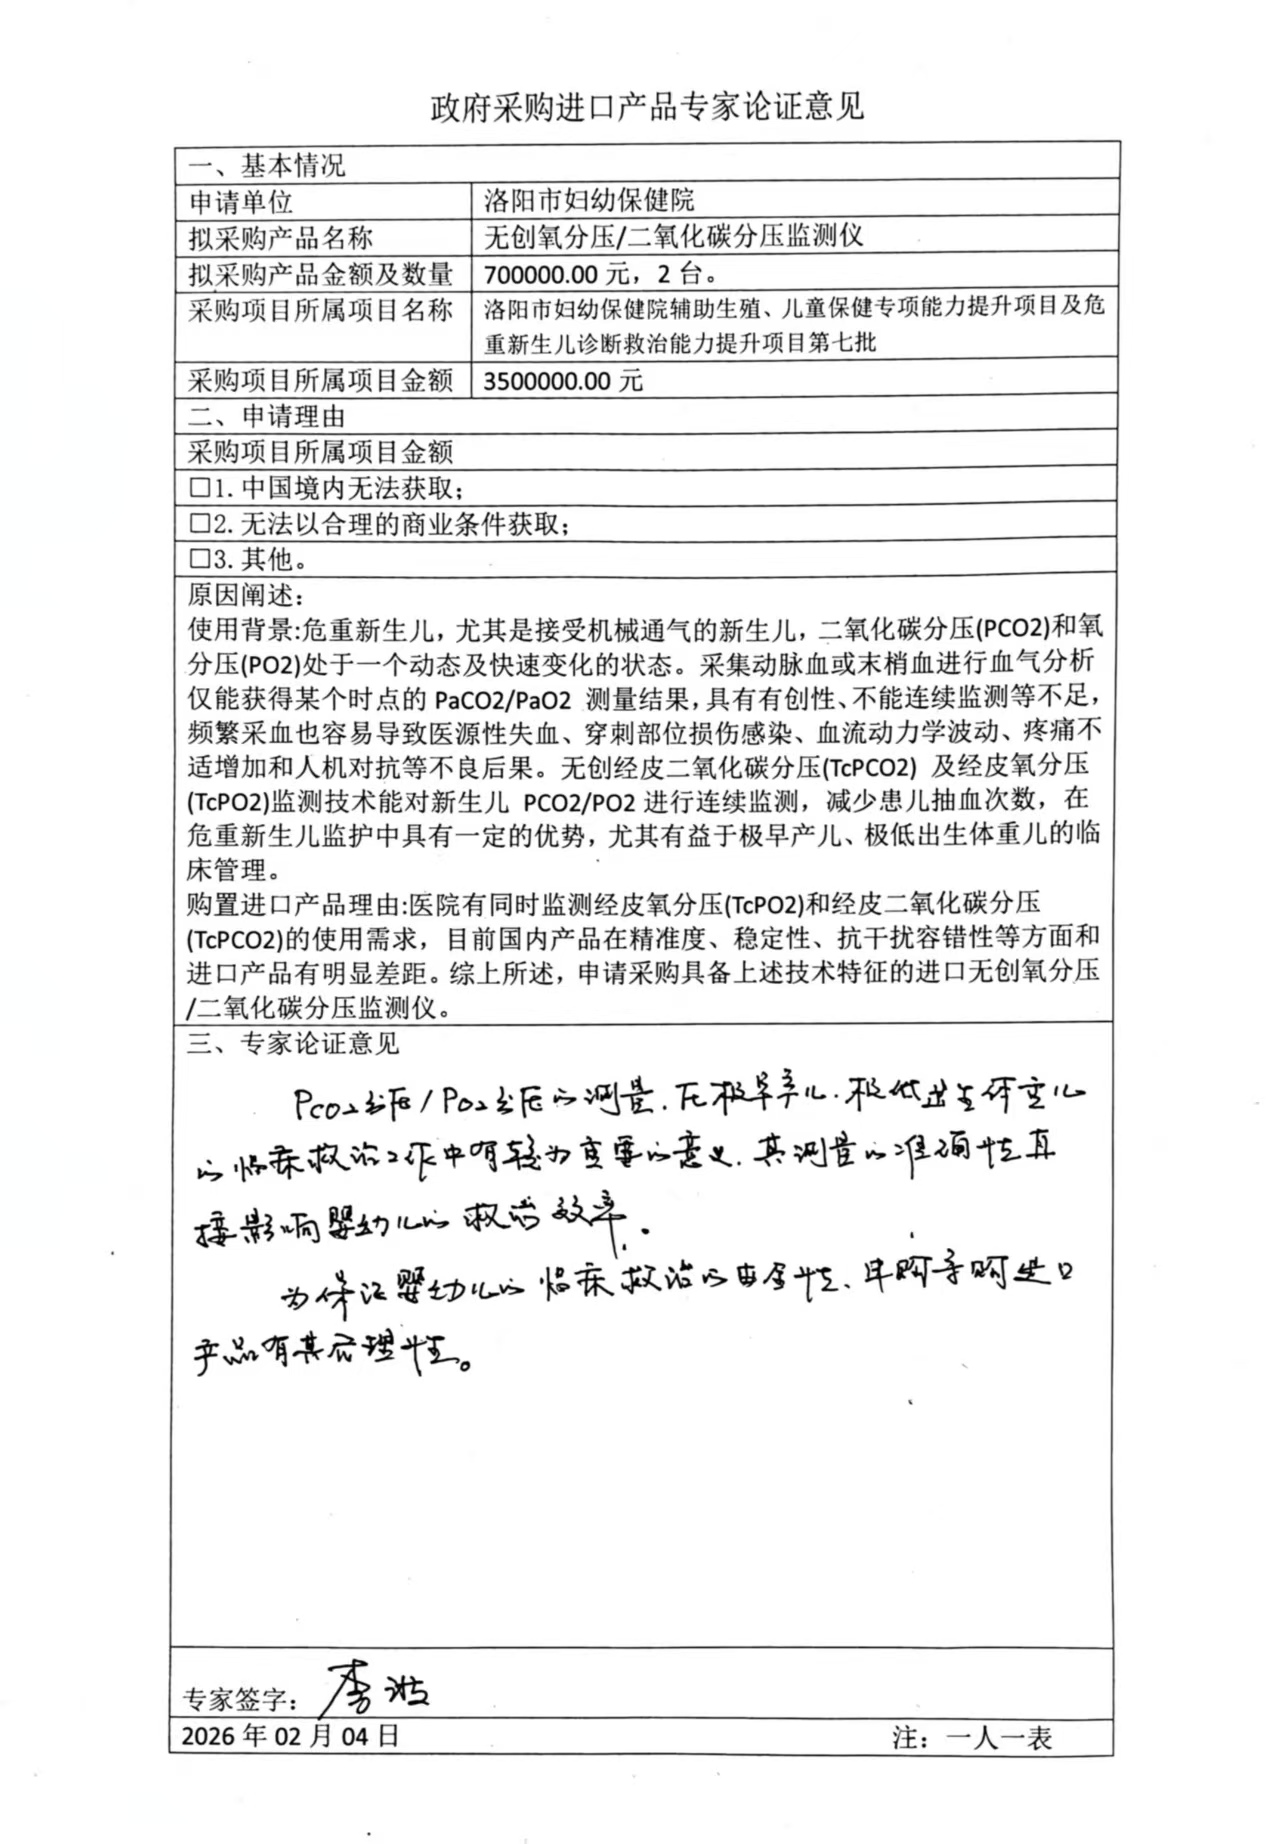 政府采购进口产品专家论证意见
一、基本情况
申请单位 洛阳市妇幼保健院
拟采购产品名称 无创氧分压/二氧化碳分压监测仪
拟采购产品金额及数量 700000.00 元，2 台。
采购项目所属项目名称 洛阳市妇幼保健院辅助生殖、儿童保健专项能力提升项目及危
重新生儿诊断救治能力提升项目第七批
采购项目所属项目金额 3500000.00 元
二、申请理由
采购项目所属项目金额
□1. 中国境内无法获取；
□2. 无法以合理的商业条件获取；
□3. 其他。
原因阐述：
使用背景:危重新生儿，尤其是接受机械通气的新生儿，二氧化碳分压(PCO2)和氧
分压(PO2)处于一个动态及快速变化的状态。采集动脉血或末梢血进行血气分析
仅能获得某个时点的 PaCO2/PaO2 测量结果，具有有创性、不能连续监测等不足，
频繁采血也容易导致医源性失血、穿刺部位损伤感染、血流动力学波动、疼痛不
适增加和人机对抗等不良后果。无创经皮二氧化碳分压(TcPCO2) 及经皮氧分压
(TcPO2)监测技术能对新生儿 PCO2/PO2 进行连续监测，减少患儿抽血次数，在
危重新生儿监护中具有一定的优势，尤其有益于极早产儿、极低出生体重儿的临
床管理。
购置进口产品理由:医院有同时监测经皮氧分压(TcPO2)和经皮二氧化碳分压
(TcPCO2)的使用需求，目前国内产品在精准度、稳定性、抗干扰容错性等方面和
进口产品有明显差距。综上所述，申请采购具备上述技术特征的进口无创氧分压
/二氧化碳分压监测仪。
三、专家论证意见
PCO2分压/PO2分压的测量，在极早产儿、极低出生体重儿
的临床救治工作中有较为重要的意义，其测量的准确性直
接影响婴幼儿的救治效率。
为保证婴幼儿的临床救治的安全性，申购采购进口
产品有其合理性。
专家签字： 李
2026 年 02 月 04 日 注：一人一表